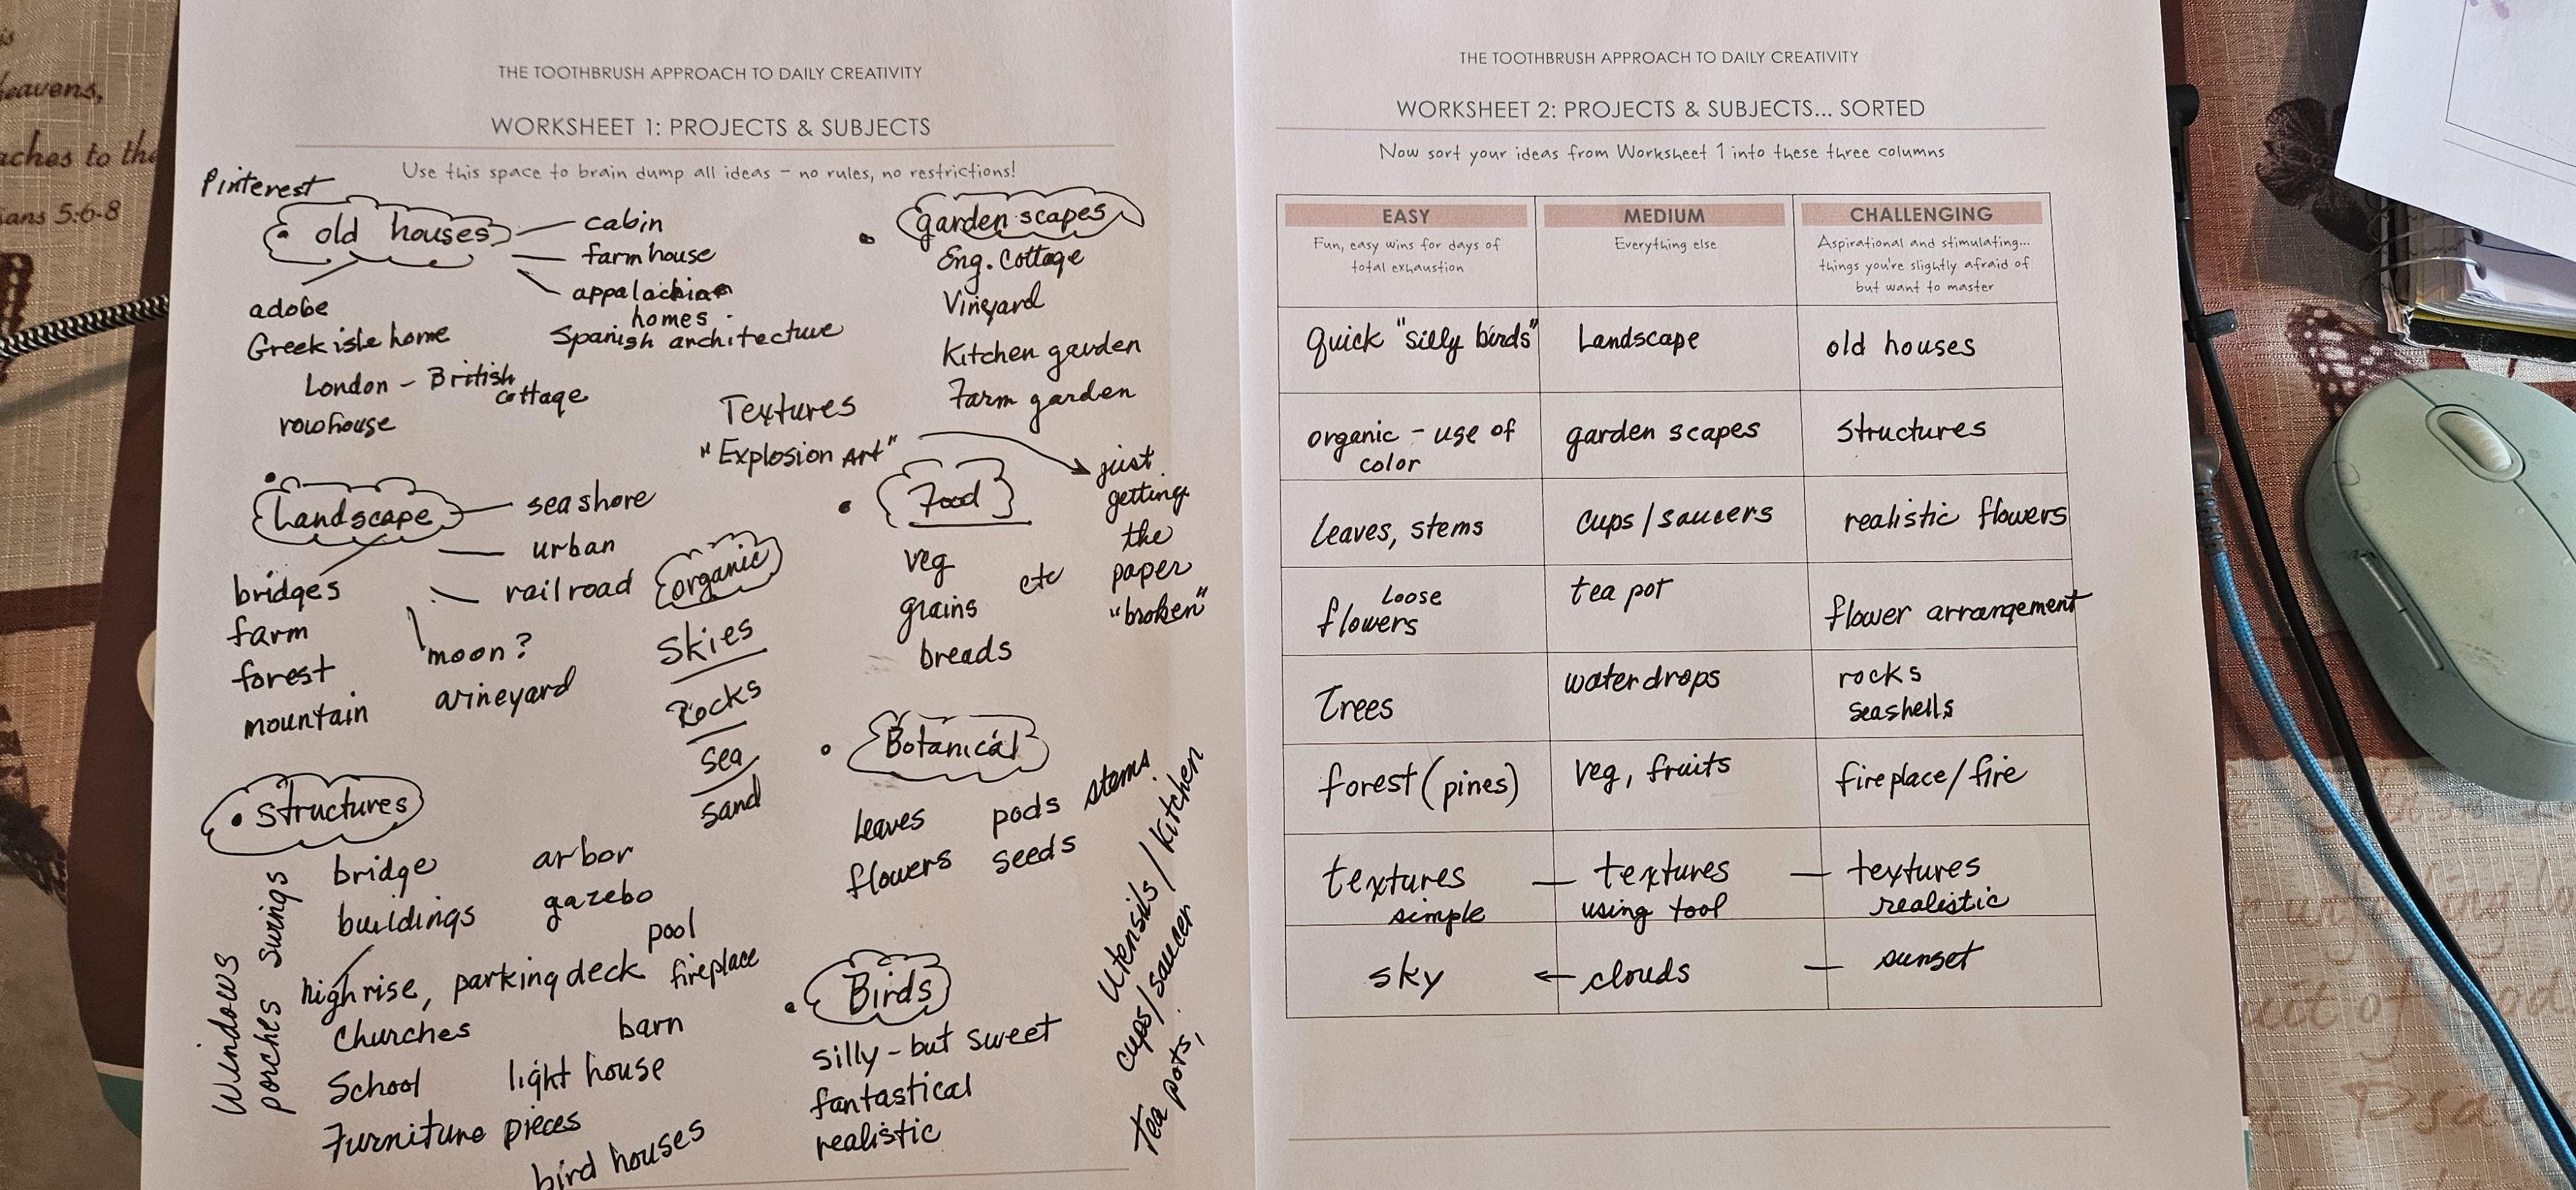 THE TOOTHBRUSH APPROACH TO DAILY CREATIVITY
WORKSHEET 1: PROJECTS & SUBJECTS
Use this space to brain dump all ideas – no rules, no restrictions!
Pinterest
old houses
cabin
farmhouse
appalachian
homes
Spanish architecture
adobe
Greek isle home
London - British
cottage
rowhouse
garden scapes
Eng. Cottage
Vineyard
Kitchen garden
Farm garden
Textures
"Explosion Art"
just
getting
the
paper
"broken"
Landscape
seashore
urban
railroad
bridges
farm
forest
mountain
moon?
vineyard
organic
skies
Rocks
sea
sand
Food
veg
grains
etc
breads
Botanical
leaves
pods
stems
flowers
seeds
Structures
bridge
arbor
buildings
gazebo
pool
highrise, parking deck
fireplace
Churches
barn
School
light house
Furniture pieces
bird houses
Windows
porches swings
Birds
silly - but sweet
fantastical
realistic
Utensils / Kitchen
cups/saucer
Tea pots,
THE TOOTHBRUSH APPROACH TO DAILY CREATIVITY
WORKSHEET 2: PROJECTS & SUBJECTS... SORTED
Now sort your ideas from Worksheet 1 into these three columns
EASY MEDIUM CHALLENGING
Fun, easy wins for days of
total exhaustion
Everything else
Aspirational and stimulating...
things you're slightly afraid of
but want to master
Quick "silly birds" Landscape old houses
organic - use of
color
garden scapes structures
Leaves, stems cups/saucers realistic flowers
Loose
flowers
tea pot flower arrangement
Trees waterdrops rocks
seashells
forest (pines) veg, fruits fireplace/fire
textures — textures — textures
simple using tool realistic
sky ← clouds — sunset
eavens,
aches to the
ians 5:6-8